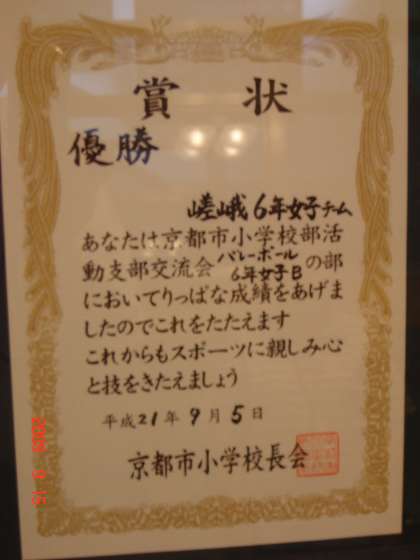 賞状
優勝
嵯峨6年女子チーム
あなたは京都市小学校部活
動支部交流会バレーボール6年女子Bの部
においてりっぱな成績をあげま
したのでこれをたたえます
これからもスポーツに親しみ心
と技をきたえましょう
平成21年9月5日
京都市小学校長会
2009 9 15